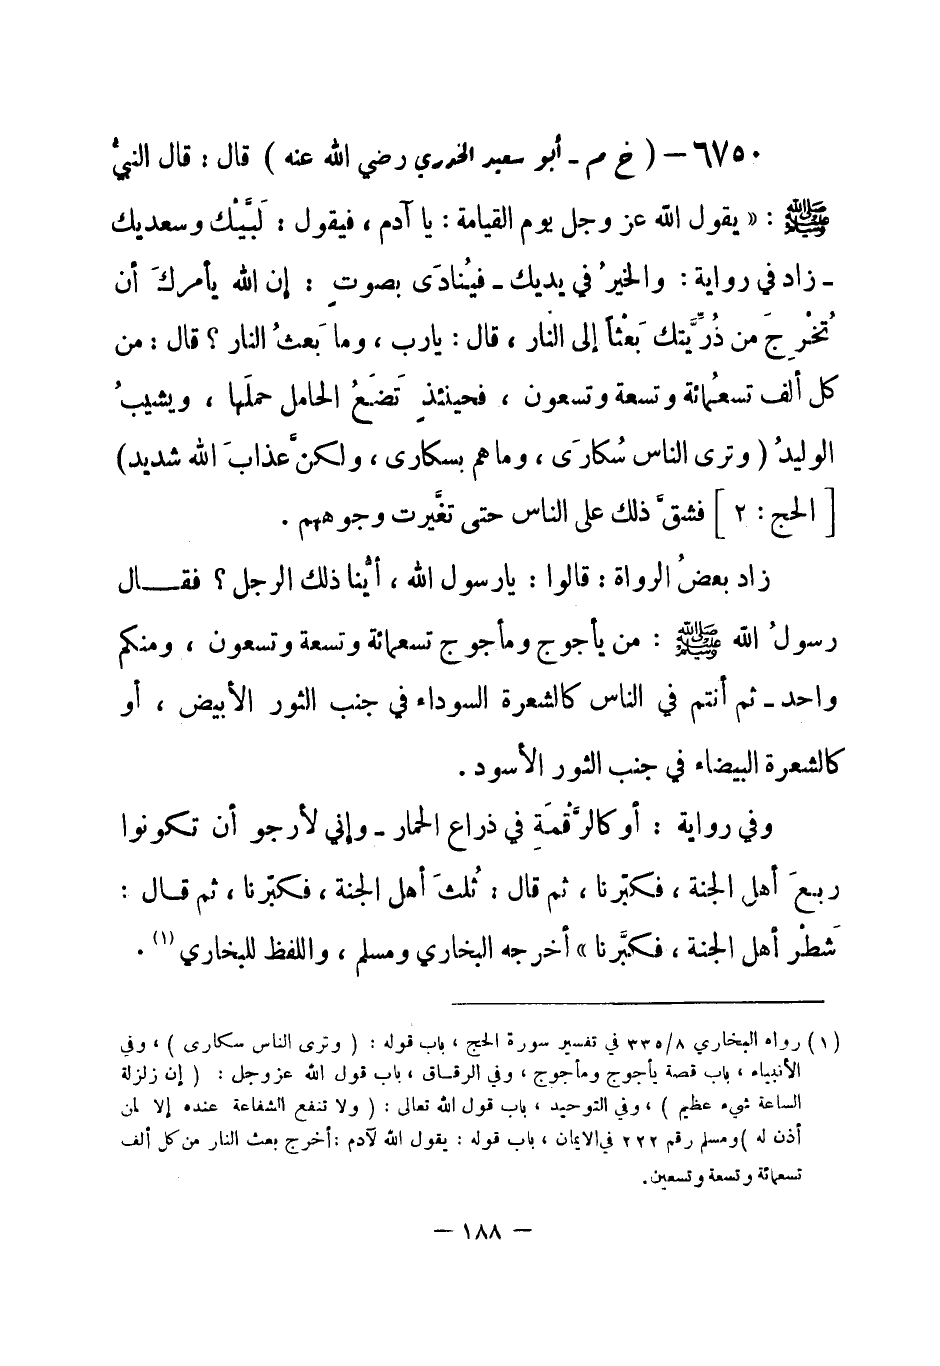 ٦٧٥٠ – ( خ م - أبو سعيد الخدري رضي الله عنه ) قال : قال النبيُّ
ﷺ : « يقول الله عز وجل يوم القيامة : يا آدم ، فيقول : لَبَّيْك وسعديك
- زاد في رواية : والخيرُ في يديك - فيُنادَى بصوتٍ : إن الله يأمركَ أن
تُخْرِجَ من ذُرِّيَّتك بَعْثاً إلى النار ، قال : يارب ، وما بَعثُ النار ؟ قال : من
كل ألف تسعُمائة وتسعة وتسعون ، فحينئذٍ تَضَعُ الحامل حملَها ، ويشيبُ
الوليدُ ( وترى الناس سُكارَى ، وما هم بسكارى ، ولكنَّ عذابَ الله شديد)
[ الحج : ٢ ] فشقَّ ذلك على الناس حتى تغَّيرت وجوههم .
زاد بعضُ الرواة : قالوا : يارسول الله ، أيُّنا ذلك الرجل ؟ فقـــال
رسولُ الله ﷺ : من يأجوج ومأجوج تسعمائة وتسعة وتسعون ، ومنكم
واحد - ثم أنتم في الناس كالشعرة السوداء في جنب الثور الأبيض ، أو
كالشعرة البيضاء في جنب الثور الأسود .
وفي رواية : أو كالرَّقْمَةِ في ذراع الحمار - وإني لأرجو أن تكونوا
ربعَ أهل الجنة ، فكبّرنا ، ثم قال : ثُلثَ أهل الجنة ، فكبّرنا ، ثم قـال :
شَطْرَ أهل الجنة ، فكبَّرنا » أخرجه البخاري ومسلم ، واللفظ للبخاري (١) .
(١) رواه البخاري ٨/ ٣٣٥ في تفسير سورة الحج ، باب قوله : ( وترى الناس سكارى ) ، وفي
الأنبياء ، باب قصة يأجوج ومأجوج ، وفي الرقاق ، باب قول الله عزوجل : ( إن زلزلة
الساعة شيء عظيم ) ، وفي التوحيد ، باب قول الله تعالى : ( ولا تنفع الشفاعة عنده إلا لمن
أذن له )ومسلم رقم ٢٢٢ في الايمان ، باب قوله : يقول الله لآدم : أخرج بعث النار من كل ألف
تسعمائة وتسعة وتسعين .
– ١٨٨ –